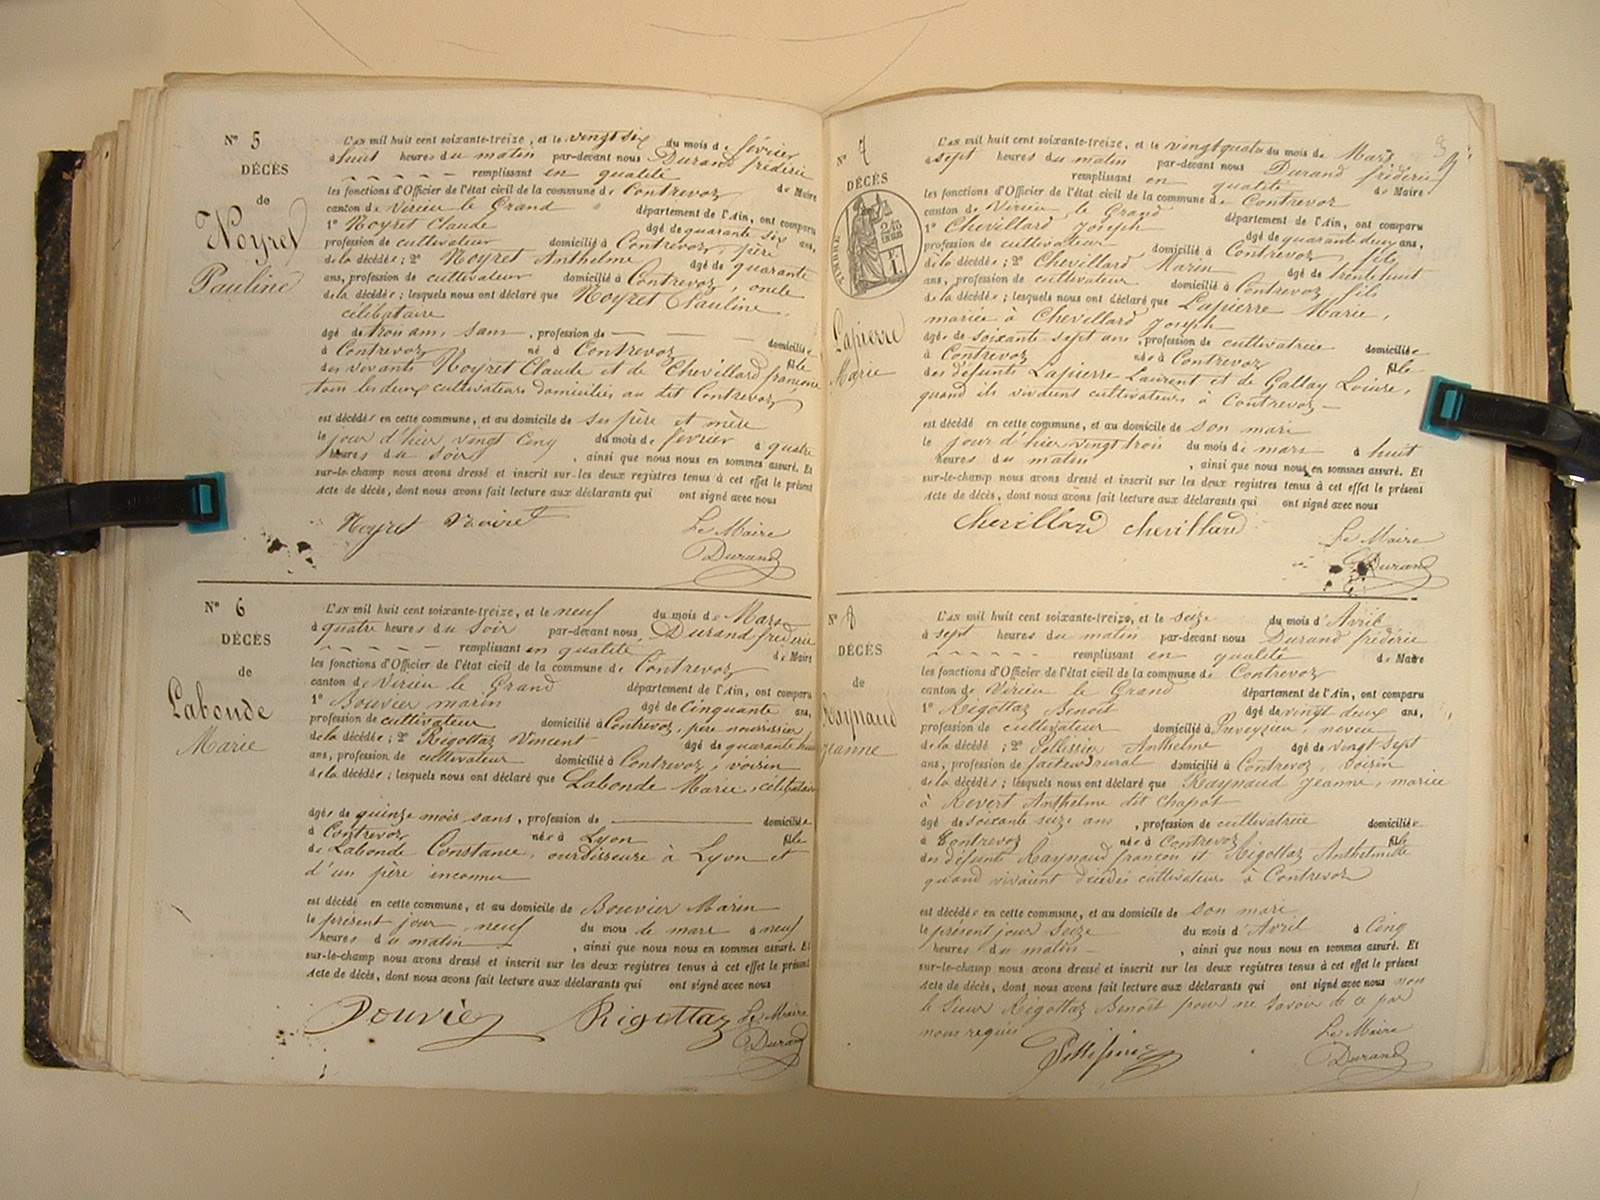 N° 5
DÉCÈS
de
Noyret
Pauline
L'an mil huit cent soixante-treize, et le vingt six du mois de février
à huit heures du matin par-devant nous Durand frédéric
remplissant en qualité de Maire
les fonctions d'Officier de l'état civil de la commune de Contrevoz
canton de Virieu le Grand département de l'Ain, ont comparu
1° Noyret Claude âgé de quarante six ans,
profession de cultivateur domicilié à Contrevoz, père
de la décédée; 2° Noyret Anthelme âgé de quarante
ans, profession de cultivateur domicilié à Contrevoz, oncle
de la décédée; lesquels nous ont déclaré que Noyret Pauline,
célibataire
âgée de trois ans, sans, profession de domiciliée
à Contrevoz né à Contrevoz fille
des vivants Noyret Claude et de Chevillard françoise
tous les deux cultivateurs domiciliés au dit Contrevoz
est décédée en cette commune, et au domicile de ses père et mère
le jour d'hier vingt cinq du mois de février à quatre
heures du soir, ainsi que nous nous en sommes assuré. Et
sur-le-champ nous avons dressé et inscrit sur les deux registres tenus à cet effet le présent
acte de décès, dont nous avons fait lecture aux déclarants qui ont signé avec nous
Noyret Noiret Le Maire
Durand
N° 6
DÉCÈS
de
Labonde
Marie
L'an mil huit cent soixante-treize, et le neuf du mois de Mars
à quatre heures du soir par-devant nous, Durand frédéric
remplissant en qualité de Maire
les fonctions d'Officier de l'état civil de la commune de Contrevoz
canton de Virieu le Grand département de l'Ain, ont comparu
1° Bouvier marin âgé de Cinquante ans,
profession de cultivateur domicilié à Contrevoz, père nourrissier
de la décédée; 2° Rigottaz Vincent âgé de quarante huit
ans, profession de cultivateur domicilié à Contrevoz, voisin
de la décédée; lesquels nous ont déclaré que Labonde Marie, célibataire
âgée de quinze mois sans, profession de domiciliée
à Contrevoz née à Lyon fille
de Labonde Constance, ourdisseuse à Lyon et
d'un père inconnu
est décédée en cette commune, et au domicile de Bouvier Marin
le présent jour neuf du mois de mars à neuf
heures du matin, ainsi que nous nous en sommes assuré. Et
sur-le-champ nous avons dressé et inscrit sur les deux registres tenus à cet effet le présent
acte de décès, dont nous avons fait lecture aux déclarants qui ont signé avec nous
Bouvier Rigottaz Le Maire
Durand
N° 7
DÉCÈS
TIMBRE
Lapierre
Marie
L'an mil huit cent soixante-treize, et le vingt quatre du mois de Mars
à sept heures du matin par-devant nous Durand frédéric
remplissant en qualité de Maire
les fonctions d'Officier de l'état civil de la commune de Contrevoz
canton de Virieu le Grand département de l'Ain, ont comparu
1° Chevillard Joseph âgé de quarante deux ans,
profession de cultivateur domicilié à Contrevoz, fils
de la décédée; 2° Chevillard Marin âgé de trente huit
ans, profession de cultivateur domicilié à Contrevoz fils
de la décédée; lesquels nous ont déclaré que Lapierre Marie,
mariée à Chevillard Joseph
âgée de soixante-sept ans, profession de cultivatrice domiciliée
à Contrevoz née à Contrevoz fille
des défunts Lapierre Laurent et de Gallay Louise,
quand ils vivaient cultivateurs à Contrevoz
est décédée en cette commune, et au domicile de son mari
le jour d'hier vingt trois du mois de mars à huit
heures du matin, ainsi que nous nous en sommes assuré. Et
sur-le-champ nous avons dressé et inscrit sur les deux registres tenus à cet effet le présent
acte de décès, dont nous avons fait lecture aux déclarants qui ont signé avec nous
Chevillard chevillard
Le Maire
Durand
N° 8
DÉCÈS
de
Raynaud
Jeanne
L'an mil huit cent soixante-treize, et le seize du mois d'Avril
à sept heures du matin par-devant nous Durand frédéric
remplissant en qualité de Maire
les fonctions d'Officier de l'état civil de la commune de Contrevoz
canton de Virieu le Grand département de l'Ain, ont comparu
1° Rigottaz Benoit âgé de vingt deux ans,
profession de cultivateur domicilié à Preveyzieu, neveu
de la décédé; 2° Pellissier Anthelme âgé de vingt sept
ans, profession de facteur rural domicilié à Contrevoz, voisin
de la décédée; lesquels nous ont déclaré que Raynaud Jeanne, mariée
à Revert Anthelme dit Chapot
âgée de soixante seize ans, profession de cultivatrice domiciliée
à Contrevoz née à Contrevoz fille
des défunts Raynaud françois et Rigottaz Anthelmette
quand vivaient décédés cultivateurs à Contrevoz
est décédée en cette commune, et au domicile de son mari
le présent jour seize du mois d'Avril à Cinq
heures du matin, ainsi que nous nous en sommes assuré. Et
sur-le-champ nous avons dressé et inscrit sur les deux registres tenus à cet effet le présent
acte de décès, dont nous avons fait lecture aux déclarants qui ont signé avec nous non
le sieur Rigottaz Benoit pour ne savoir de ce par
nous requis
Pellissier
Le Maire
Durand